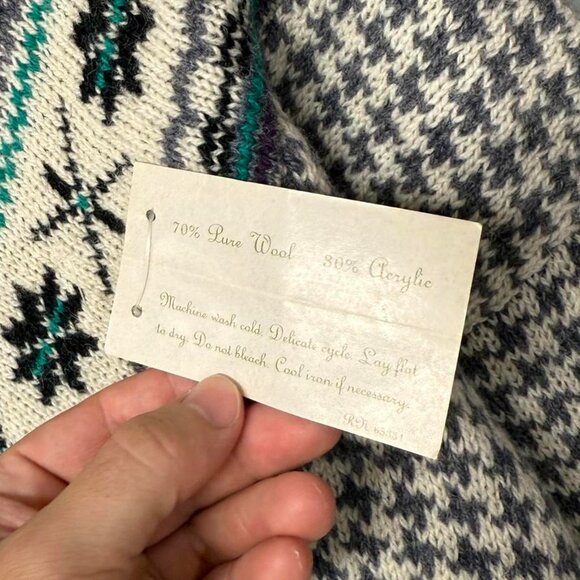 70% Pure Wool 30% Acrylic
Machine wash cold. Delicate cycle. Lay flat
to dry. Do not bleach. Cool iron if necessary.
RN 63331